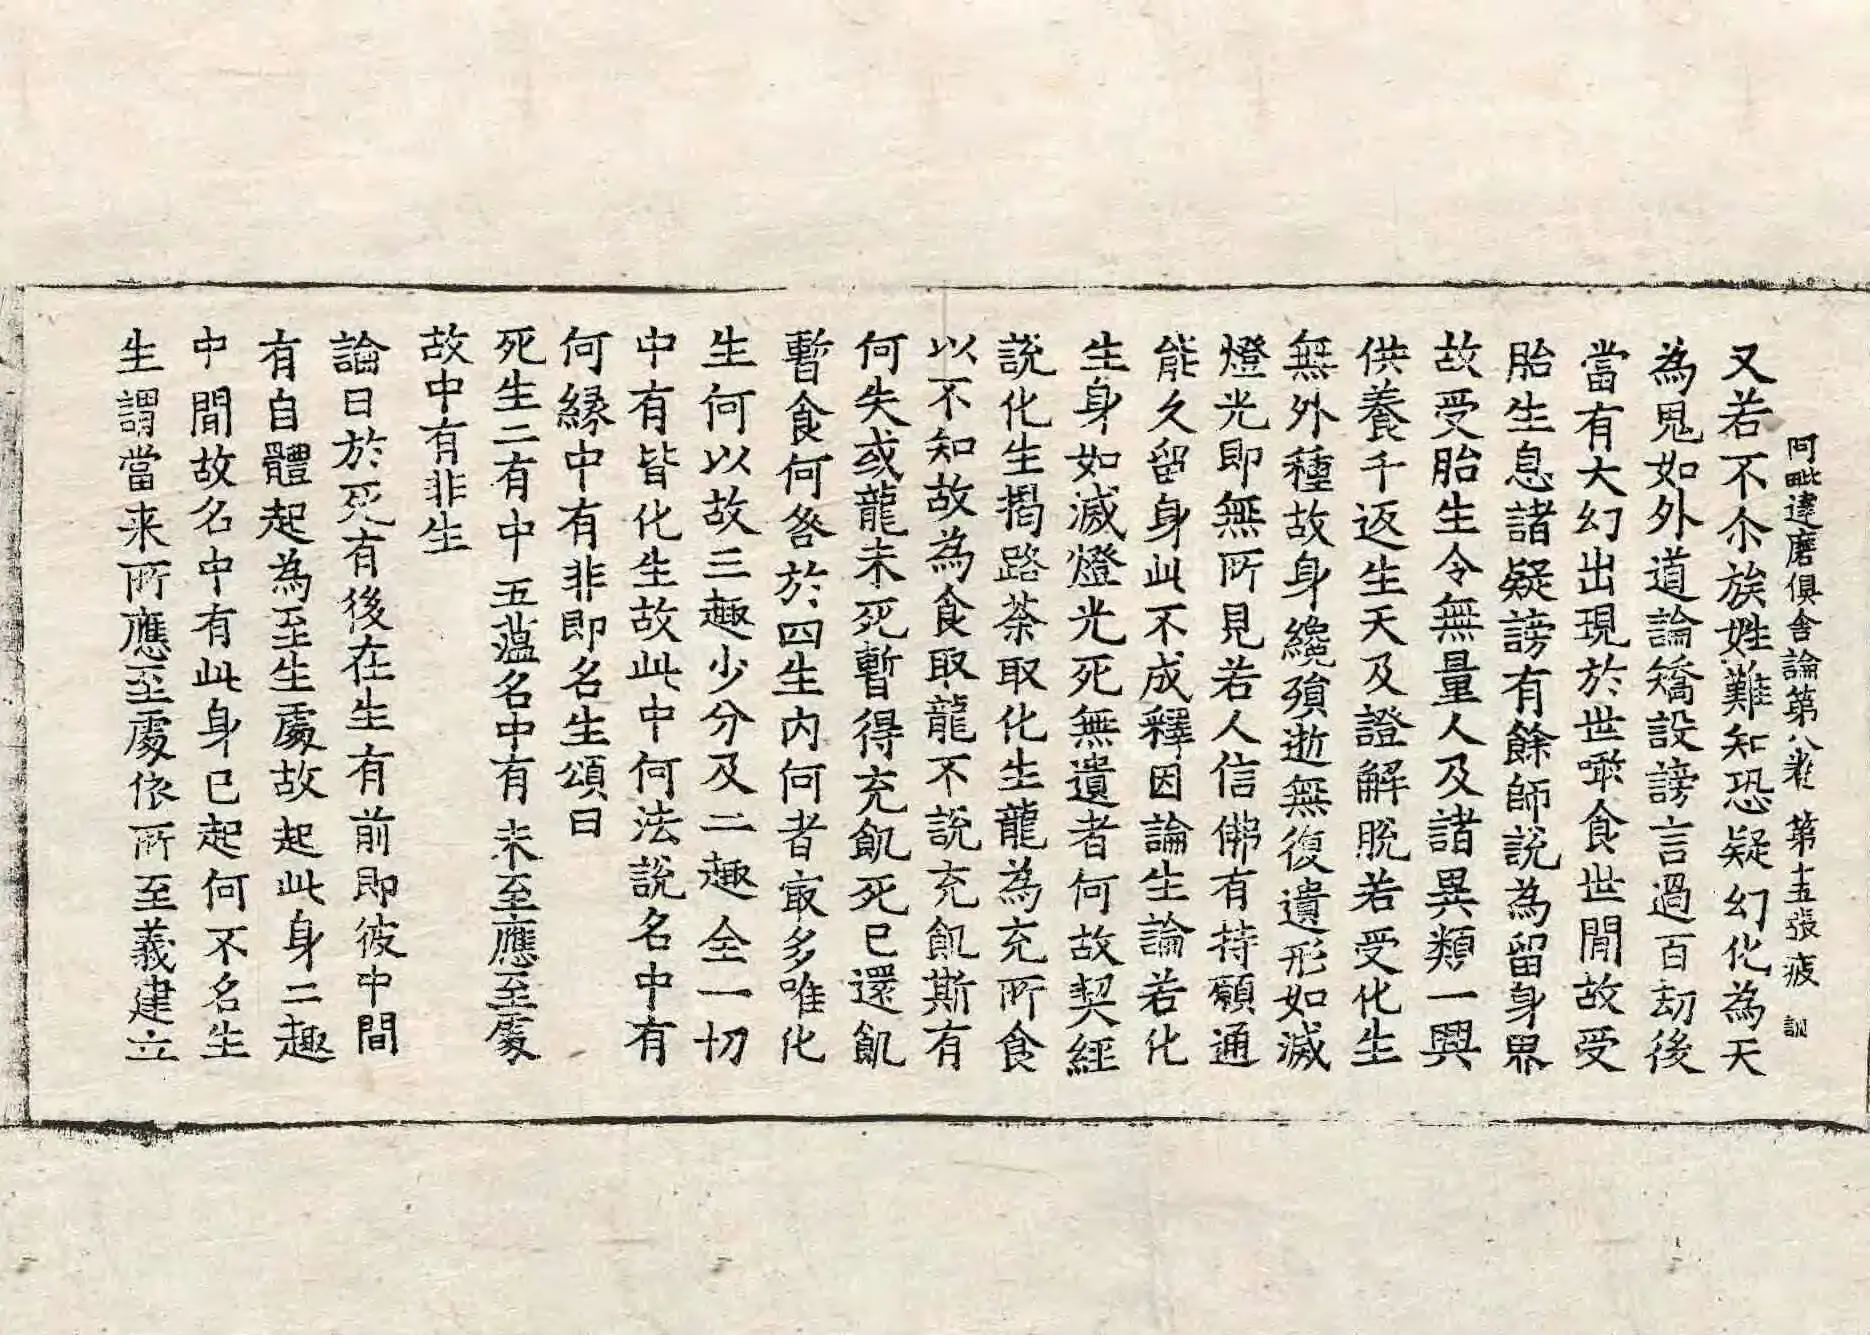 阿毗達磨俱舍論第八卷 第十五張 疲 訓
又若不尒族姓難知恐疑幻化為天
為鬼如外道論矯設謗言過百劫後
當有大幻出現於世噉食世閒故受
胎生息諸疑謗有餘師說為留身界
故受胎生令無量人及諸異類一興
供養千返生天及證解脫若受化生
無外種故身纔殞逝無復遺形如滅
燈光即無所見若人信佛有持願通
能久留身此不成釋因論生論若化
生身如滅燈光死無遺者何故契經
說化生揭路荼取化生龍為充所食
以不知故為食取龍不說充飢斯有
何失或龍未死暫得充飢死已還飢
暫食何咎於四生內何者㝡多唯化
生何以故三趣少分及二趣全一切
中有皆化生故此中何法說名中有
何緣中有非即名生頌曰
死生二有中五蘊名中有未至應至處
故中有非生
論曰於死有後在生有前即彼中間
有自體起為至生處故起此身二趣
中間故名中有此身已起何不名生
生謂當来所應至處依所至義建立